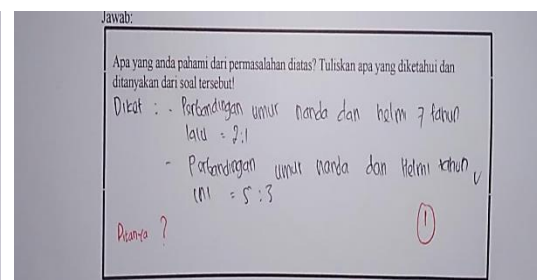 Jawab:
Apa yang anda pahami dari permasalahan diatas? Tuliskan apa yang diketahui dan
ditanyakan dari soal tersebut!
Diket : - Perbandingan umur nanda dan helmi 7 tahun
lalu = 2:1
- Perbandingan umur nanda dan Helmi tahun
ini = 5:3
Ditanya ?
1